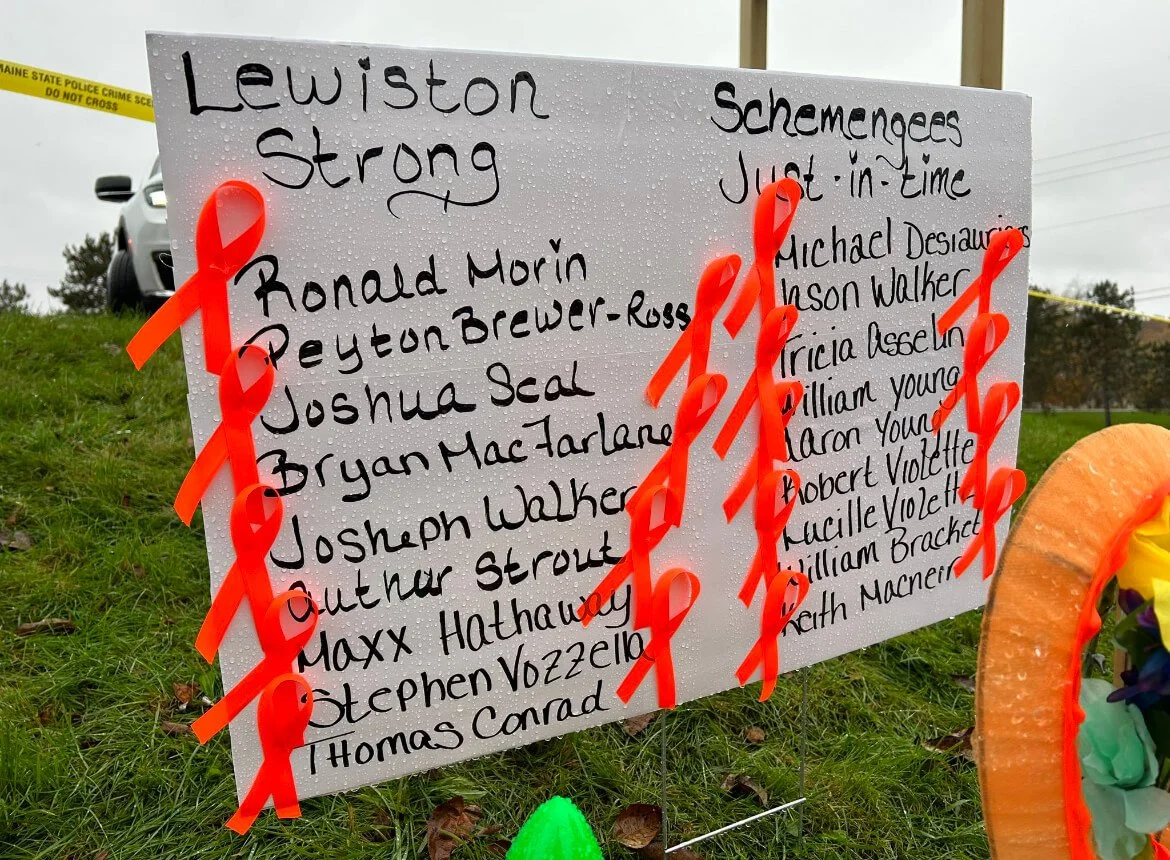 MAINE STATE POLICE CRIME SCE
DO NOT CROSS
Lewiston
Strong
Ronald Morin
Peyton Brewer-Ross
Joshua Seal
Bryan MacFarlane
Josheph Walker
Authur Strout
Maxx Hathaway
Stephen Vozzella
Thomas Conrad
Schemengees
Just-in-time
Michael Deslauriers
Jason Walker
Tricia Asselin
William Young
Aaron Young
Robert Violette
Lucille Violette
William Bracket
Keith Macneir